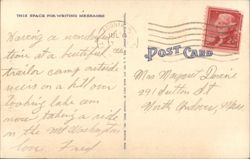 THIS SPACE FOR WRITING MESSAGES
Having a wonderful
time at a beautiful
trailor camp outside
on a hill over
looking lake am
now taking a ride
in the Mt Washington
Love Fred
JUL
POST CARD
Mrs Margaret
291 Sutton St
North Andover, Mass